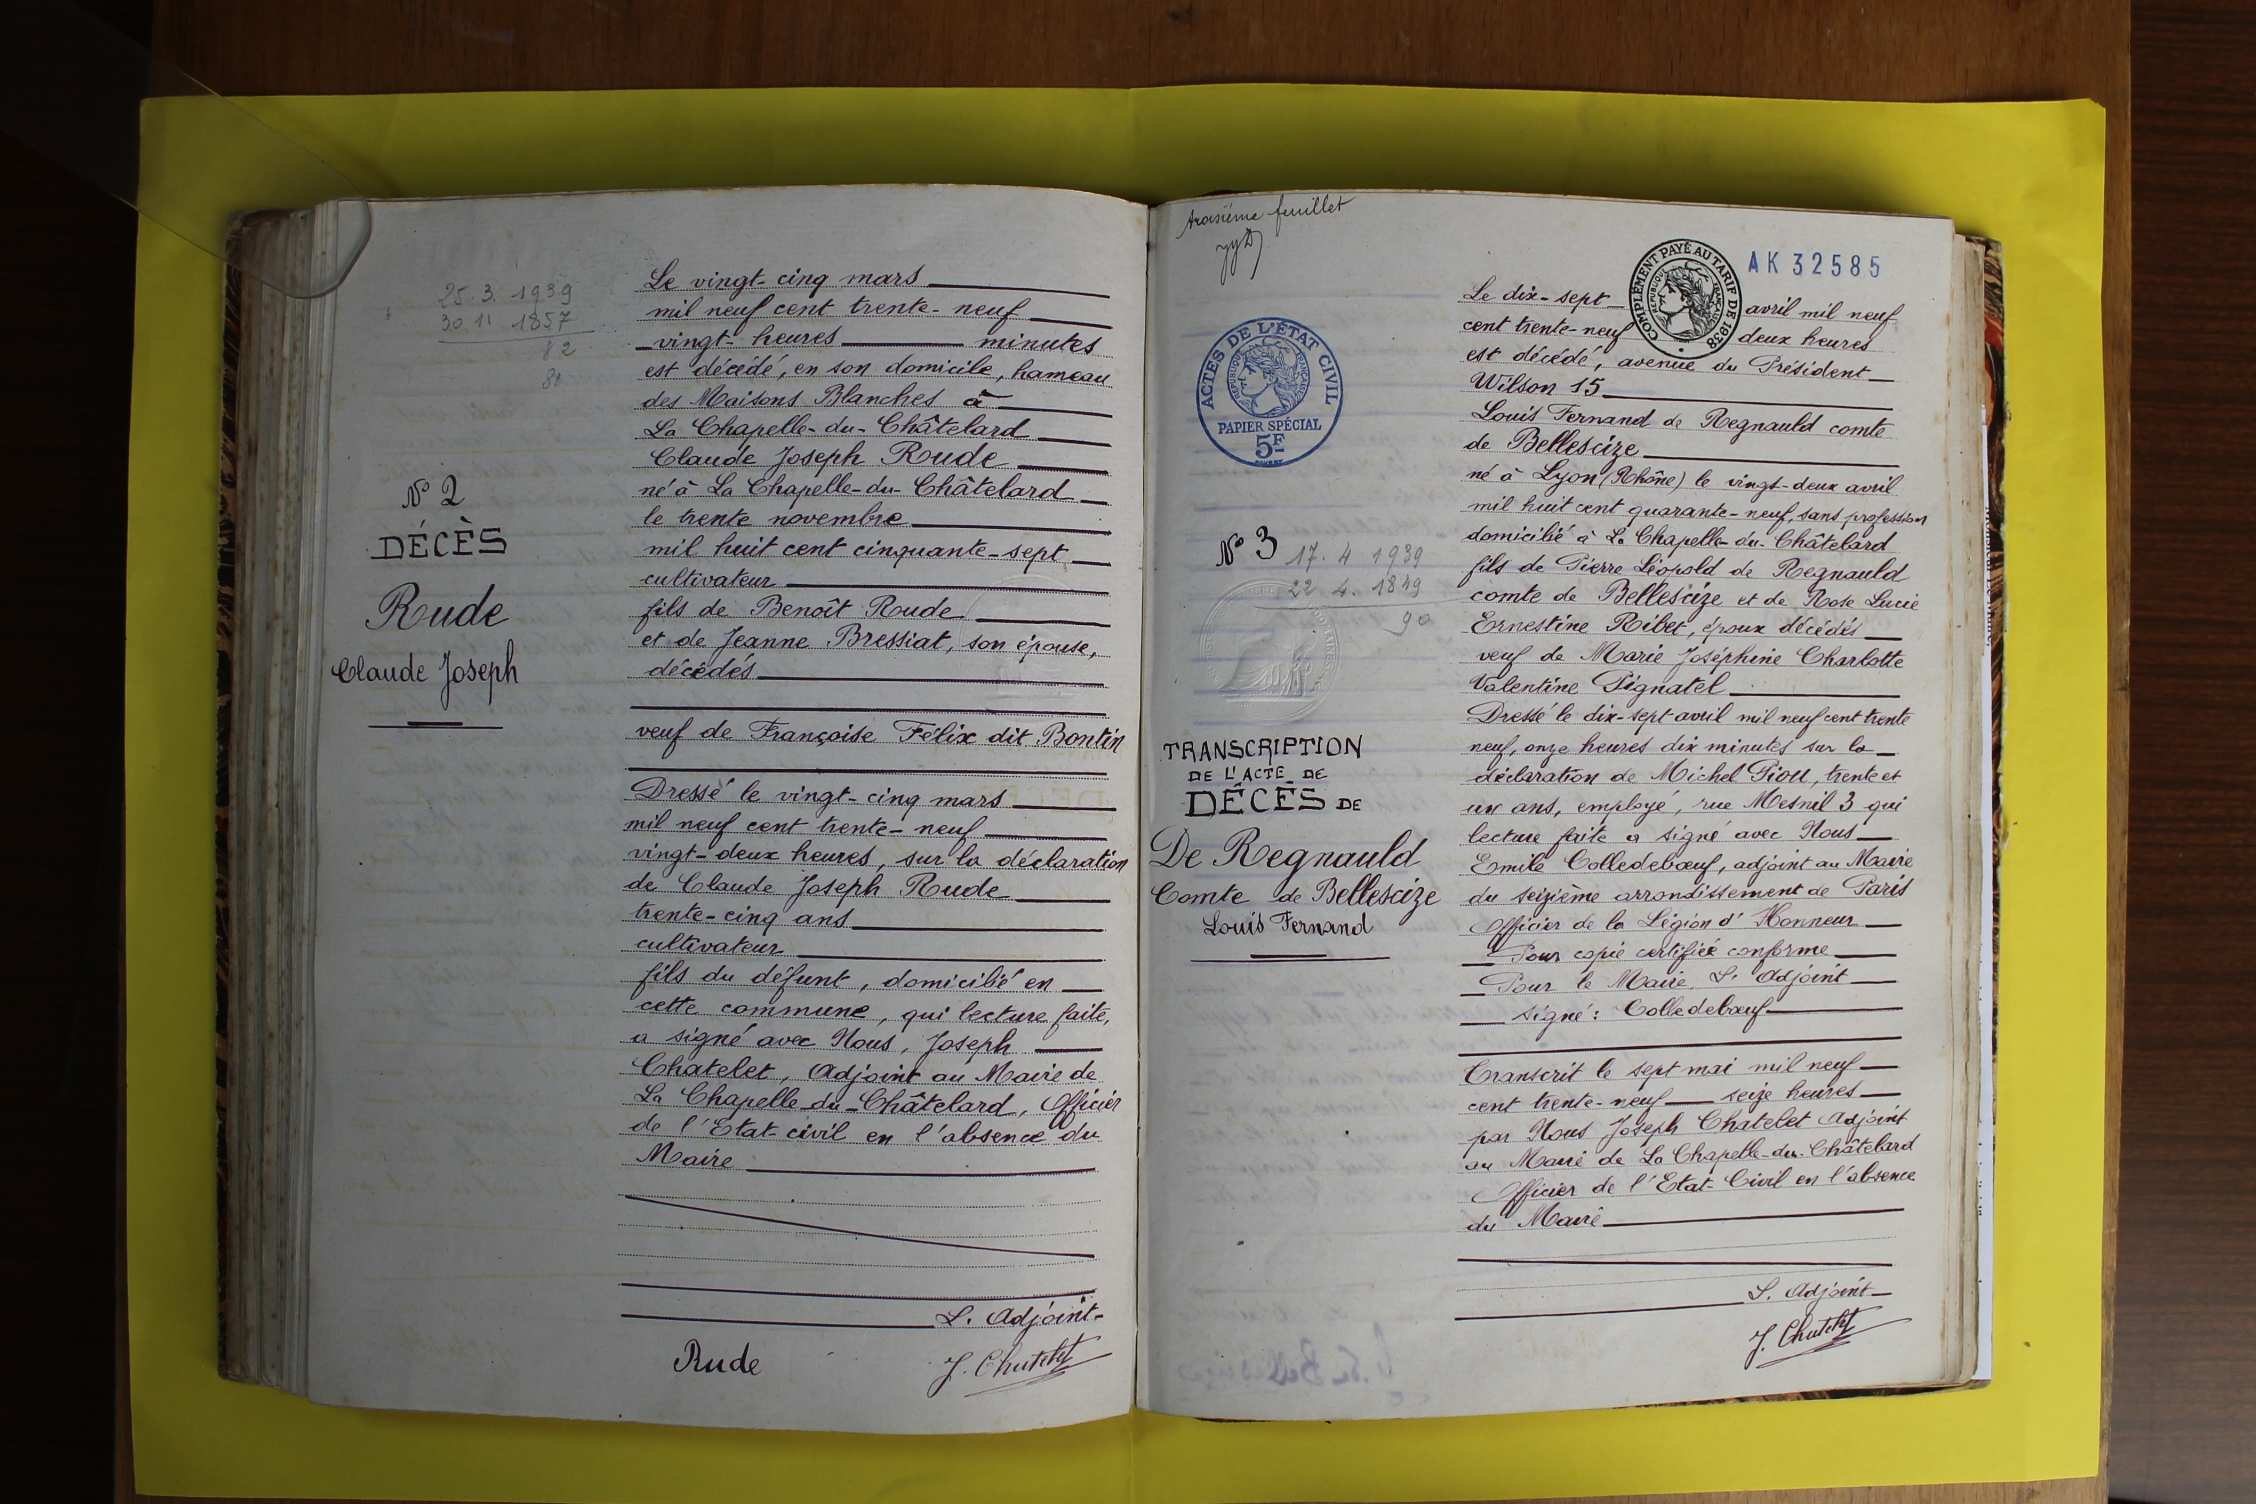 25.3.1939
30 11 1857
82
81
N° 2
DÉCÈS
Rude
Claude Joseph
Le vingt-cinq mars
mil neuf cent trente-neuf
vingt heures minutes
est décédé, en son domicile, hameau
des Maisons Blanches à
La Chapelle-du-Châtelard
Claude Joseph Rude
né à La Chapelle-du-Châtelard
le trente novembre
mil huit cent cinquante-sept
cultivateur
fils de Benoît Rude
et de Jeanne Bressiat, son épouse,
décédés
veuf de Françoise Félix dit Bontin
Dressé le vingt-cinq mars
mil neuf cent trente-neuf
vingt-deux heures, sur la déclaration
de Claude Joseph Rude
trente-cinq ans
cultivateur
fils du défunt, domicilié en
cette commune, qui lecture faite,
a signé avec Nous, Joseph
Chatelet, Adjoint au Maire de
La Chapelle-du-Châtelard, Officier
de l'Etat-civil en l'absence du
Maire
L. Adjoint
Rude J. Chatelet
troisième feuillet
ACTES DE L'ÉTAT CIVIL
RÉPUBLIQUE FRANÇAISE
PAPIER SPÉCIAL
5F
N° 3
17.4 1939
22 4.1849
90
TRANSCRIPTION
DE L'ACTE DE
DÉCÈS DE
De Regnauld
Comte de Bellescize
Louis Fernand
COMPLÉMENT PAYÉ AU TARIF DE 1938
RÉPUBLIQUE FRANÇAISE
AK 32585
Le dix-sept avril mil neuf
cent trente-neuf deux heures
est décédé, avenue du Président
Wilson 15
Louis Fernand de Regnauld comte
de Bellescize
né à Lyon (Rhône) le vingt-deux avril
mil huit cent quarante-neuf, sans profession
domicilié à La Chapelle-du-Châtelard
fils de Pierre Léopold de Regnauld
comte de Bellescize et de Rose Lucie
Ernestine Ribet, époux décédés
veuf de Marie Joséphine Charlotte
Valentine Pignatel
Dressé le dix-sept avril mil neuf cent trente
neuf, onze heures dix minutes sur la
déclaration de Michel Piou, trente et
un ans, employé, rue Mesnil 3 qui
lecture faite a signé avec Nous
Emile Colledebœuf, adjoint au Maire
du seizième arrondissement de Paris
Officier de la Légion d'Honneur
Pour copie certifiée conforme
Pour le Maire, L'Adjoint
signé: Colledebœuf
Transcrit le sept mai mil neuf
cent trente-neuf seize heures
par Nous Joseph Chatelet Adjoint
au Maire de La Chapelle-du-Châtelard
Officier de l'Etat-Civil en l'absence
du Maire
L. Adjoint
J. Chatelet